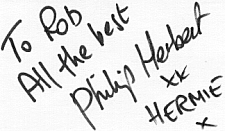 To Rob
All the best
Philip Herbert
xx
HERMIE
x